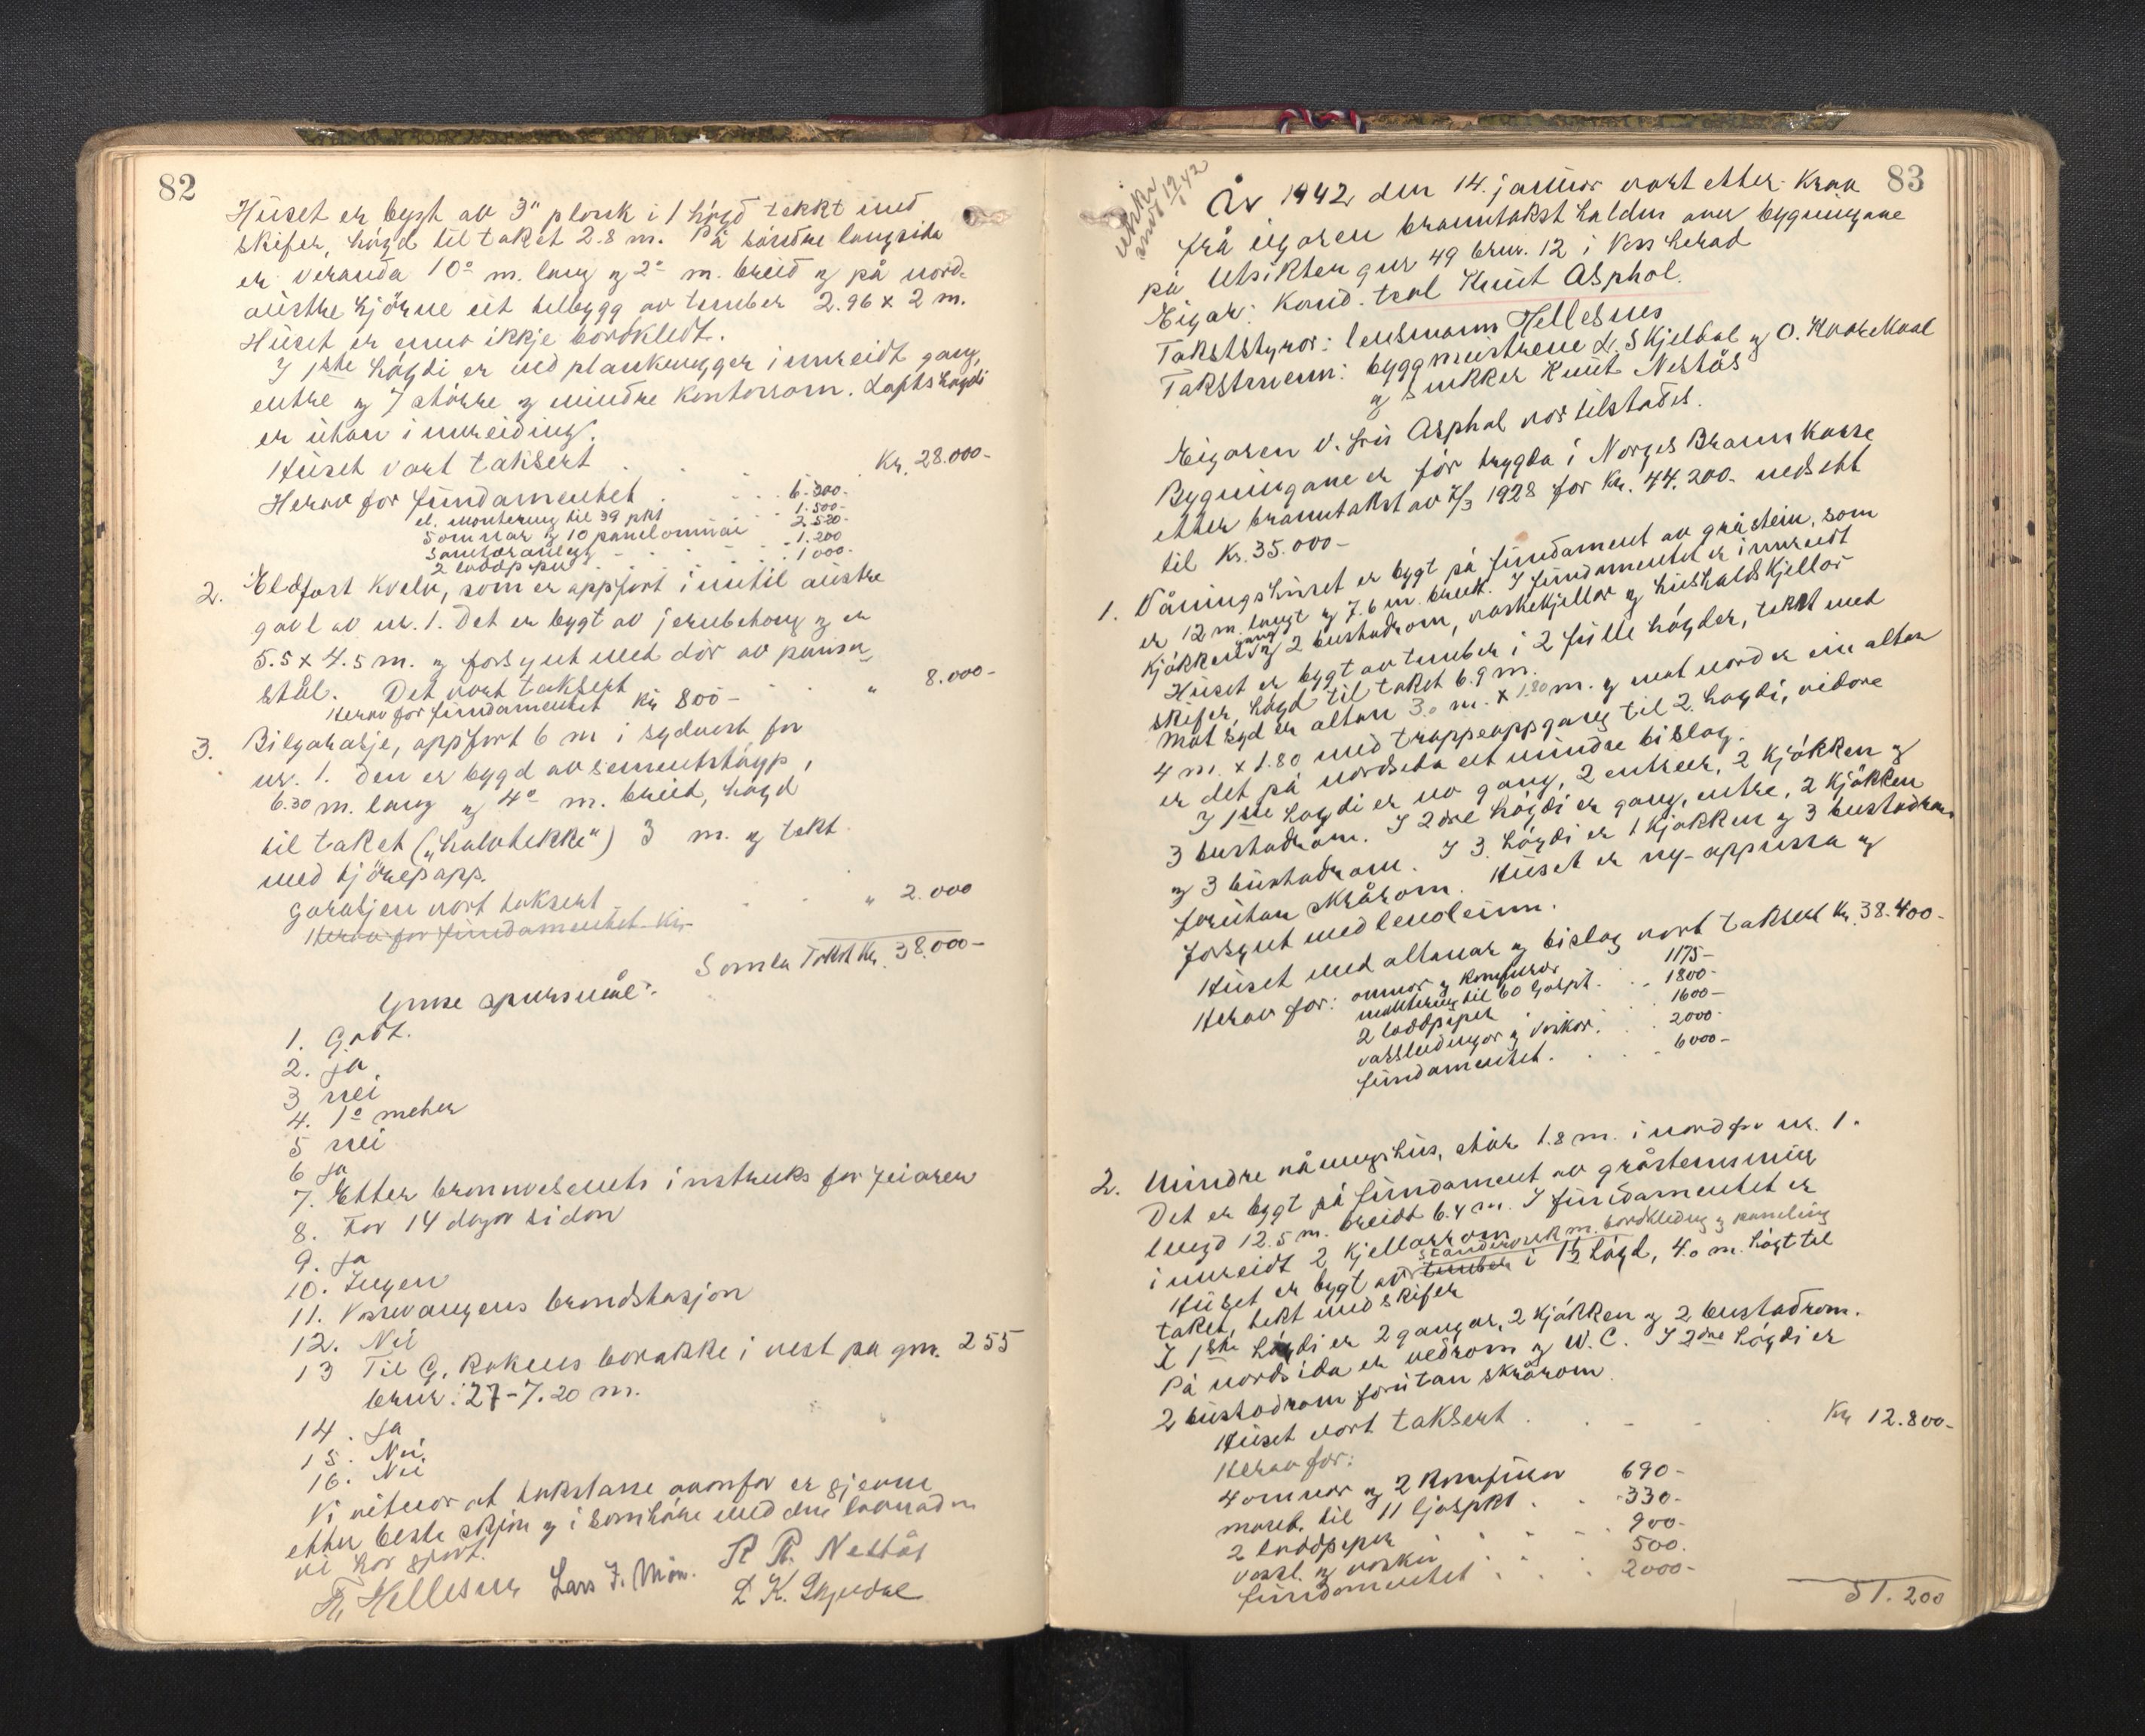 82
Huset er bygt av 3" plank i 1 høgd tekkt med
skifer, høgd til taket 2.8 m. På søndre langsida
er veranda 10º m. lang og 2º m. breid og på nord-
austre hjörne eit tilbygg av tømber 2.96 x 2 m.
Huset er enno ikkje bordkledt.
I 1ste høgdi er med plankevegger innreidt gang,
entre og 7 større og mindre kontorrom. Loftshøgdi
er utan innreiding.
Huset vart taksert . . . . Kr. 28.000-
Herav for fundamentet . . . . 6.300.
el. montering til 39 pkt . . 1.500-
omnar og 10 panelomnar 2.520-
Sanitæranlegg . . . . 1.200
2 loddpiper . . . . 1000-
2. Eldfast kvelv, som er oppført inntil austre
gavl av nr. 1. Det er bygt av jernbetong og er
5.5 x 4.5 m. og forsynt med dör av panser
stål. Det vart taksert . . . " 8.000-
Herav for fundamentet kr 800-
3. Bilgarasje, oppført 6 m i sydvest for
nr. 1. Den er bygd av sementstøyp,
6.30 m. lang og 4º m. breid, høgd
til taket („halvtekke") 3 m. og tekt
med tjörepapp.
Garasjen vart taksert . . . " 2.000
Herav for fundamentet kr-
Somla Takst Kr. 38.000-
Ymse spursmål:
1. Godt.
2. ja
3 nei
4. 1º meter
5 nei
6 ja
7. Etter brannvesenets instruks for feiaren
8. For 14 dagar sidan
9. Ja
10. Ingen
11. Vossevangens brandstasjon
12. Nei
13 Til G. Roknes barakke i vest på gnr. 255
brnr. 27 - 7.20 m.
14. Ja
15. Nei.
16. Nei
Vi vitnar at takstane ovanfor er gjevne
etter beste skjøn og i samhøve med den lovnad
vi har gjort.
Hellesnes Lars J. Møn. K K. Nestås
L K. Skjeldal
83
År 1942, den 14. januar vart etter krav
frå eigaren branntakst halden over bygningane
på Utsikten gnr 49 brnr. 12 i Voss herad
Eigar: Kand. teol Knut Asphol.
Takststyrar: lensmann Hellesnes
Takstmenn: byggmeistrene L. Skjeldal og O. Kvarekval
og Snikker Knut Nestås
Eigaren v. fru Asphol var tilstades.
Bygningane er för trygda i Norges Brannkasse
etter branntakst av 7/3 1928 for Kr. 44.200- nedsett
til Kr. 35.000-
1. Våningshuset er bygt på fundament av gråstein, som
er 12 m. langt og 7.6 m. breidt. I fundamentet er innreidt
kjökken gang og 2 bustadrom, vaskekjellar og hushaldskjellar
Huset er bygt av tømber i 2 fulle høgder, tekt med
skifer, høgd til taket 6.9 m.
Mot syd er altan 3.0 m. x 1.80 m. og mot nord er ein altan
4 m. x 1.80 med trappeoppgang til 2. høgdi, vidare
er det på nordsida eit mindre bislag.
I 1ste høgdi er no gang, 2 entreer, 2 kjökken og
3 bustadrom. I 2dre høgdi er gang, entre, 2 kjökken
og 3 bustadrom. I 3. høgdi er 1 kjøkken og 3 bustadrom
forutan skrårom. Huset er ny-oppussa og
forsynt med linoleum.
Huset med altanar og bislag vart taksert Kr. 38.400-
Herav for: omnar og komfurar 1175-
montering til 60 ljospkt. . . 1800-
2 loddpiper . . 1600-
vassleidningar og vaskar. . . 2000-
fundamentet. . . . 6000-
2. Mindre våningshus, står 1.8 m. i nord for nr. 1.
Det er bygt på fundament av gråsteinsmur
lengd 12.5 m. breidt 6.4 m. I fundamentet er
innreidt 2 kjellarrom
standerverk m. bordkleding og paneling
Huset er bygt av tømber i 1½ høgd, 4.0 m. høgt til
taket, tekt med skifer
I 1ste høgdi er 2 gangar, 2 kjøkken og 2 bustadrom.
På nordsida er vedrom og W.C. I 2dre høgdi er
2 bustadrom forutan skrårom.
Huset vart taksert . . . . Kr 12.800-
Herav for:
4 omnar og 2 komfurar 690-
mont. til 11 ljospkt . . 330-
2 loddpiper . . . 900-
vassl. og vaskar . . . 500.
fundamentet . . . 2000-
51.200